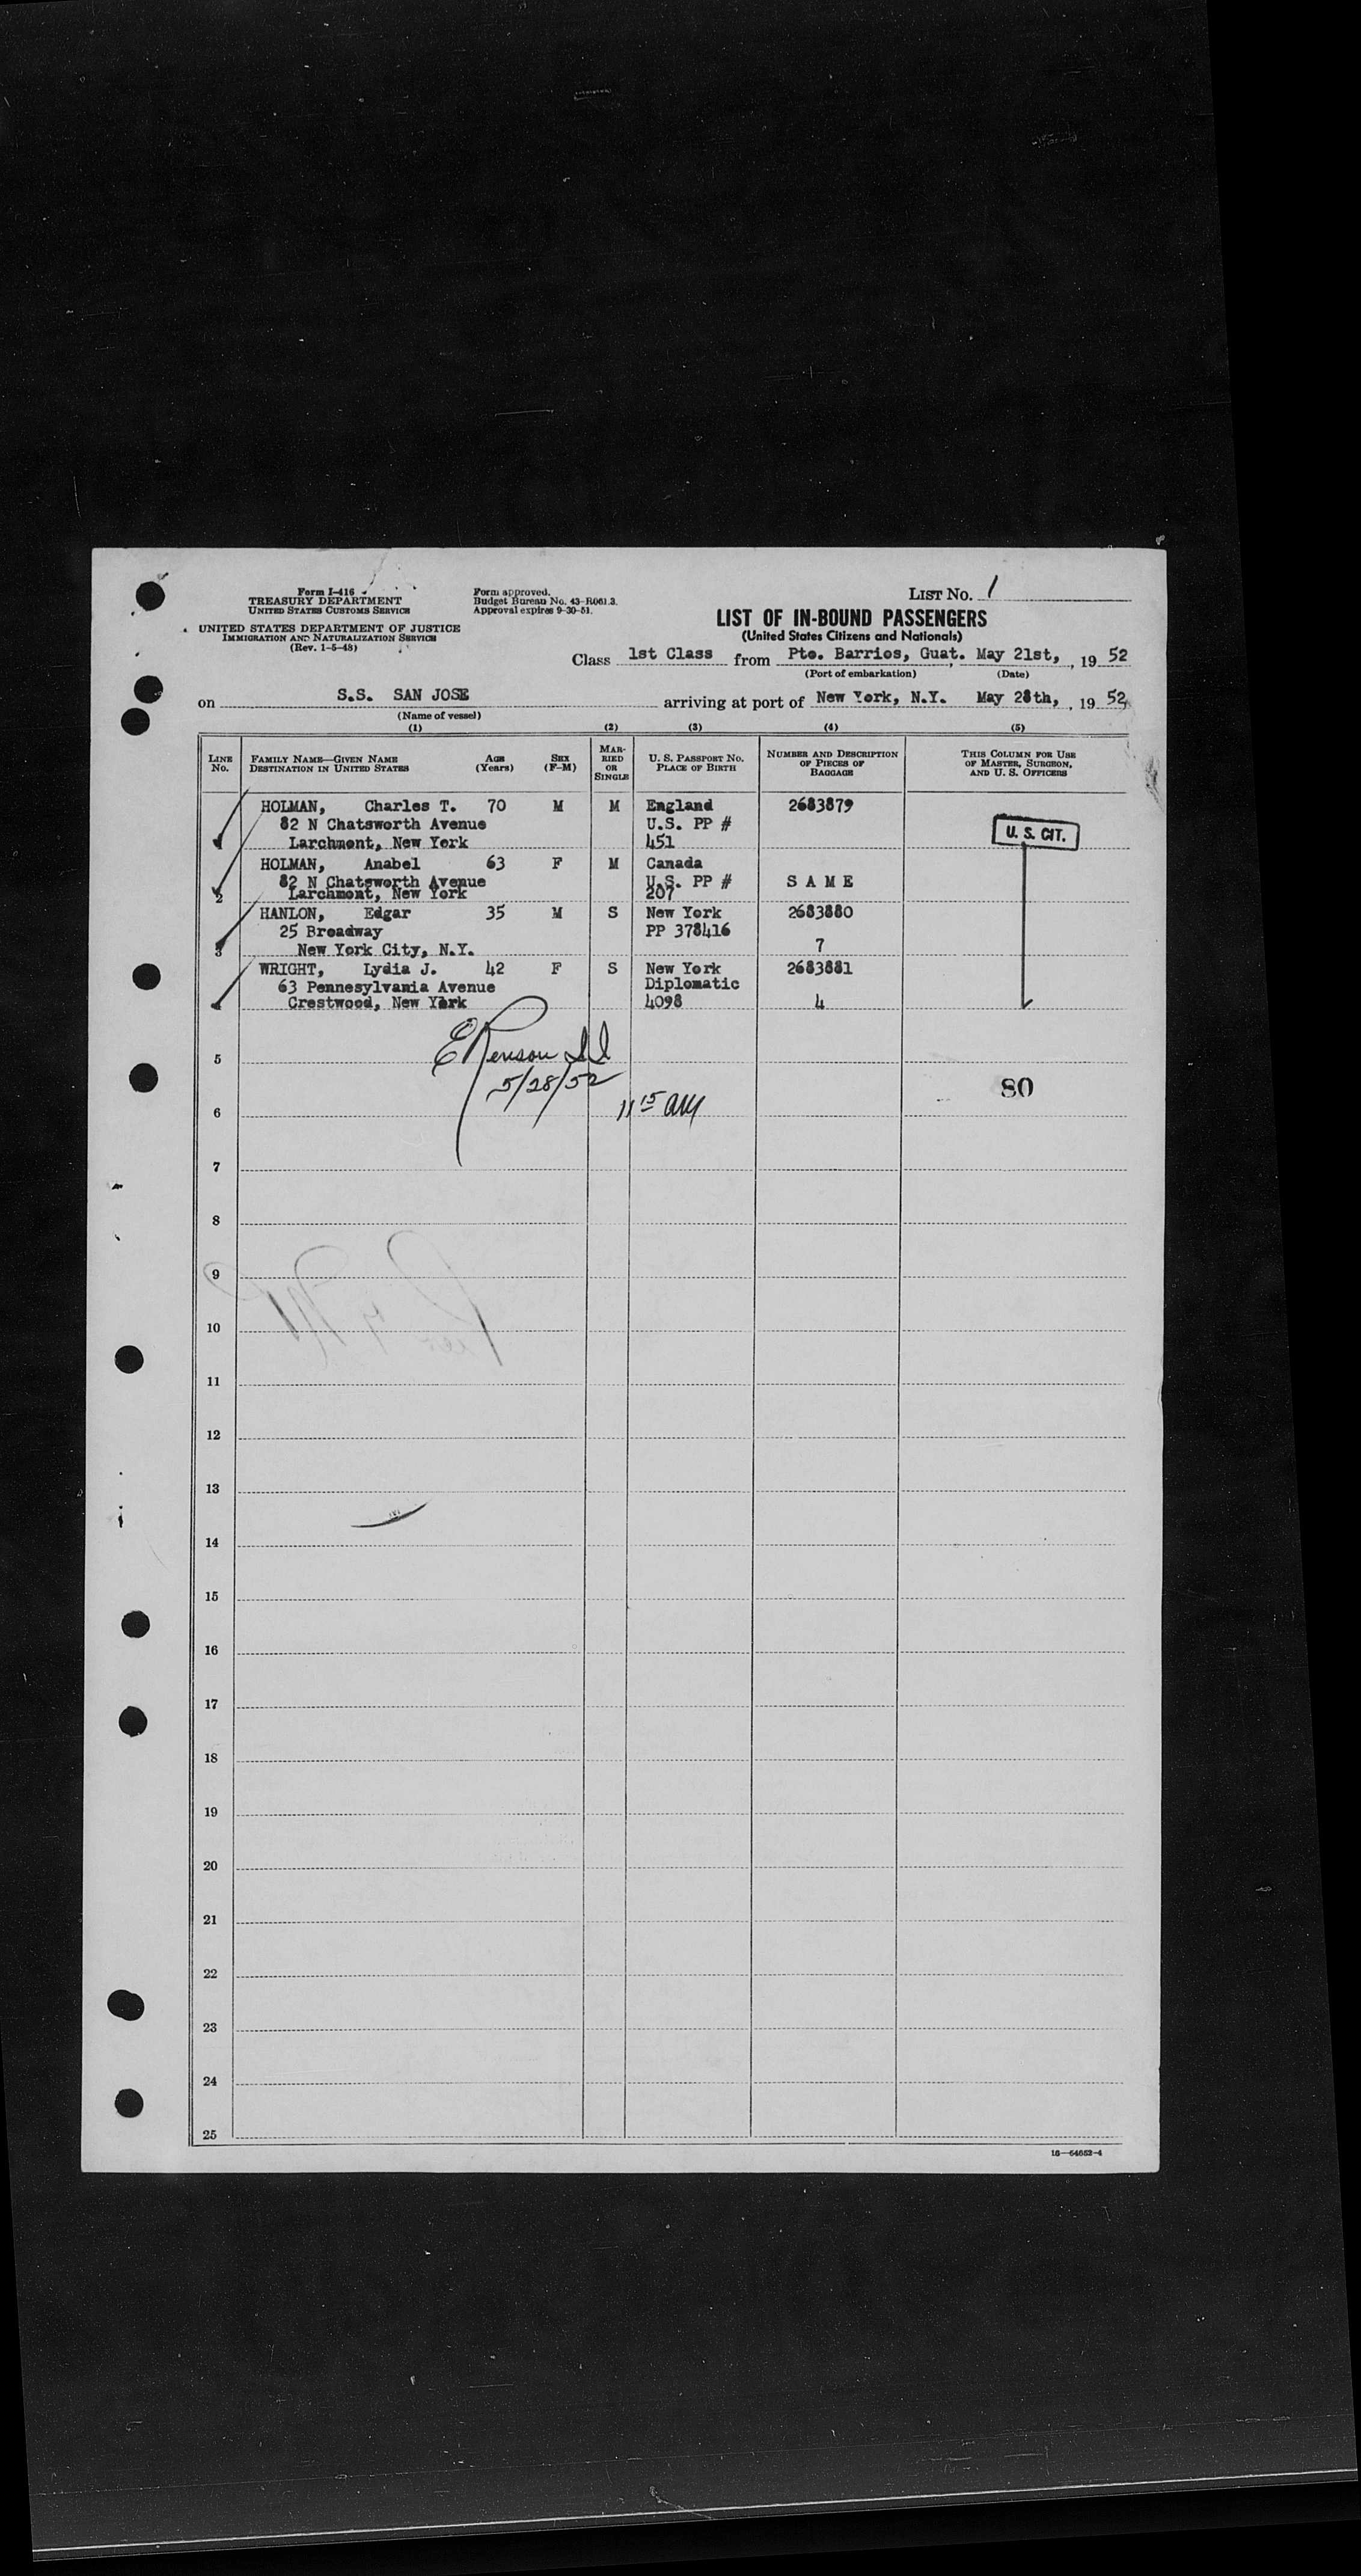 Form I-416
TREASURY DEPARTMENT
UNITED STATES CUSTOMS SERVICE
UNITED STATES DEPARTMENT OF JUSTICE
IMMIGRATION AND NATURALIZATION SERVICE
(Rev. 1-5-48)
Form approved.
Budget Bureau No. 43-R061.3.
Approval expires 9-30-51.
LIST NO. 1
LIST OF IN-BOUND PASSENGERS
(United States Citizens and Nationals)
Class 1st Class from Pto. Barrios, Guat. May 21st, , 19 52
(Port of embarkation) (Date)
on S.S. SAN JOSE arriving at port of New York, N.Y. May 28th, , 19 52
(Name of vessel)
(1) (2) (3) (4) (5)
LINE NO. FAMILY NAME—GIVEN NAME DESTINATION IN UNITED STATES AGE (Years) SEX (F-M) MARRIED OR SINGLE U. S. PASSPORT NO. PLACE OF BIRTH NUMBER AND DESCRIPTION OF PIECES OF BAGGAGE THIS COLUMN FOR USE OF MASTER, SURGEON, AND U. S. OFFICERS
HOLMAN, Charles T. 70 M M England 2683879
82 N Chatsworth Avenue U.S. PP # U. S. CIT.
Larchmont, New York 451
HOLMAN, Anabel 63 F M Canada
82 N Chatsworth Avenue U.S. PP # S A M E
2 Larchmont, New York 207
HANLON, Edgar 35 M S New York 2683880
25 Broadway PP 378416
3 New York City, N.Y. 7
WRIGHT, Lydia J. 42 F S New York 2683881
63 Pennesylvania Avenue Diplomatic
Crestwood, New York 4098 4
5
5/28/52
80
6 11 15 AM
7
8
9
10
11
12
13
14
15
16
17
18
19
20
21
22
23
24
25
16—54652-4